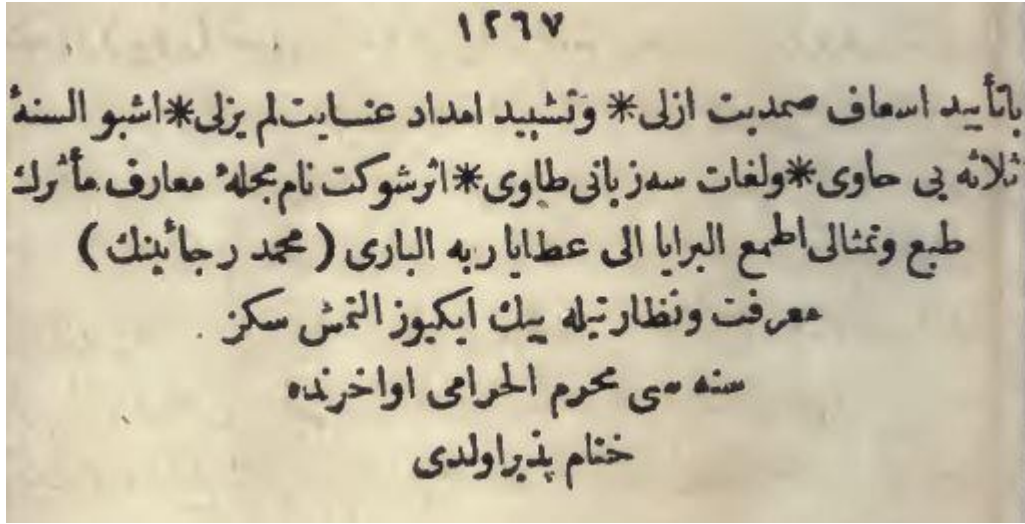 ١٢٦٧
باتأييد اسعاف صمديت ازلى * وتشييد امداد عنايت لم يزلى * اشبو السنهٔ
ثلاثه يى حاوى * ولغات سه زبانى طاوى * اثر شوكت نام مجلهٔ معارف مأثرك
طبع وتمثالى اطمع البرايا الى عطايا ربه البارى ( محمد رجائينك )
معرفت ونظارتيله بيك ايكيوز التمش سكز
سنه سى محرم الحرامى اواخرنده
ختام پذير اولدى